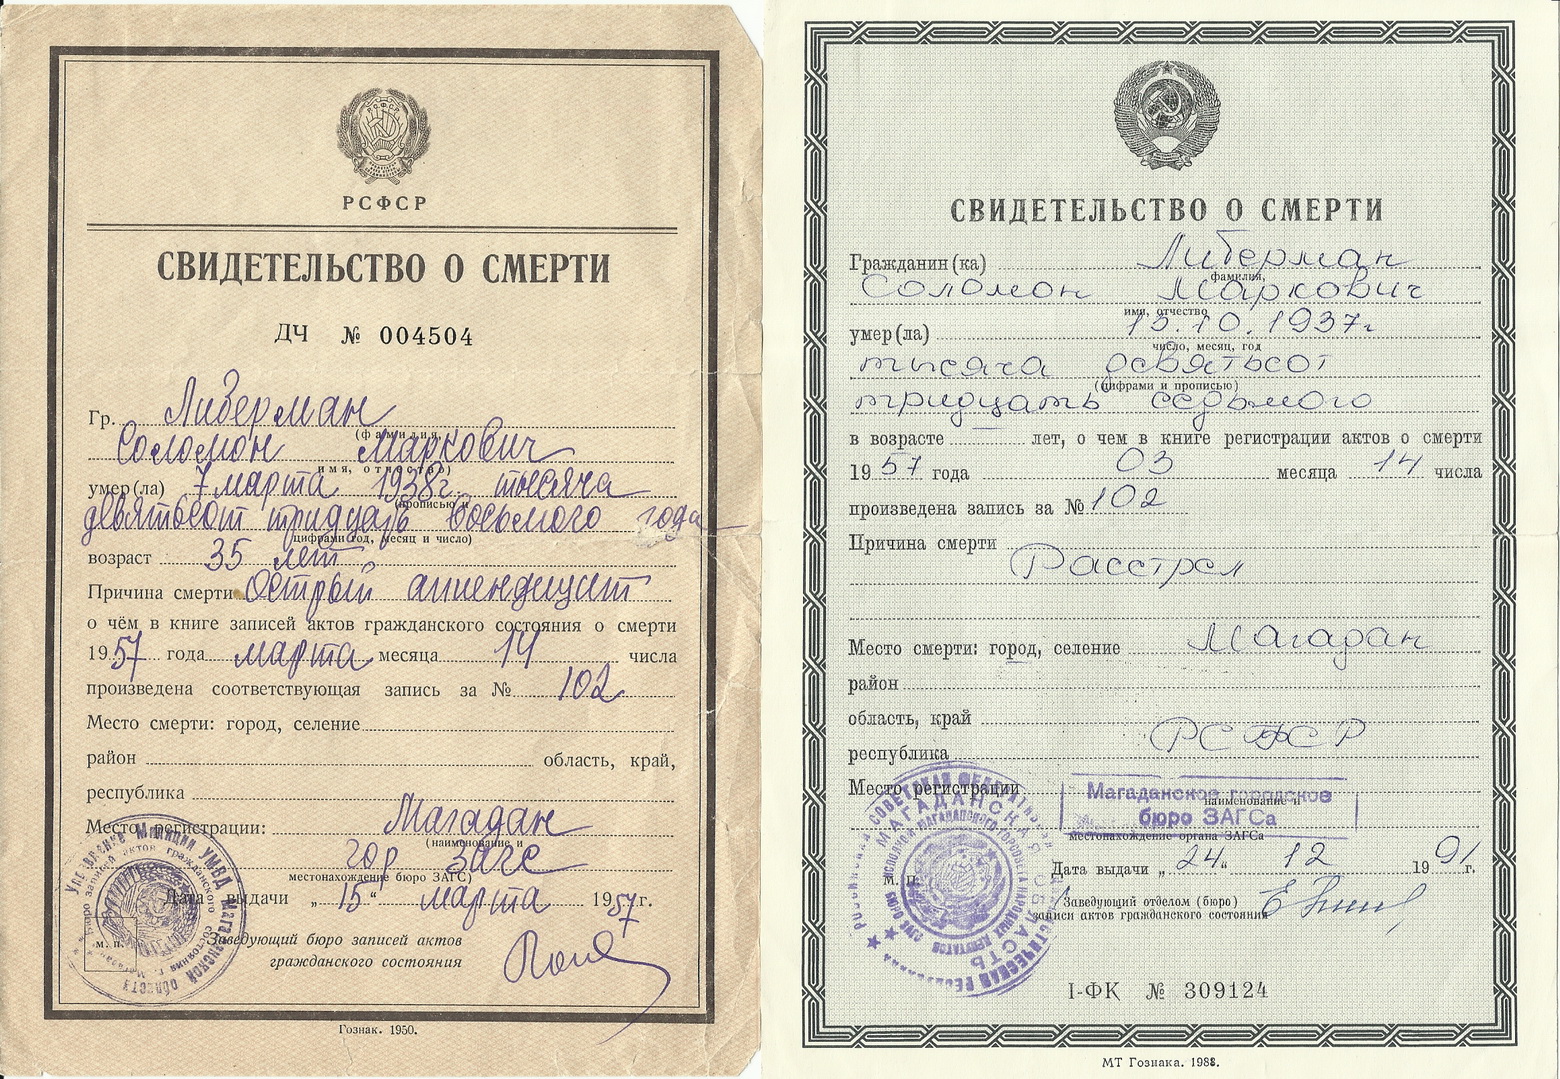 РСФСР
СВИДЕТЕЛЬСТВО О СМЕРТИ
ДЧ № 004504
Гр. Либерман
(фамилия,
Соломон Маркович
имя, отчество)
умер(ла) 7 марта 1938г. тысяча
(прописью и
девятьсот тридцать восьмого года
цифрами год, месяц и число)
возраст 35 лет
Причина смерти Острый аппендицит
о чём в книге записей актов гражданского состояния о смерти
1957 года марта месяца 14 числа
произведена соответствующая запись за № 102
Место смерти: город, селение
район область, край,
республика
Место регистрации: Магадан
(наименование и
гор загс
местонахождение бюро ЗАГС)
Дата выдачи „15“ марта 1957г.
м. п.
Заведующий бюро записей актов
гражданского состояния
Гознак. 1950.
СВИДЕТЕЛЬСТВО О СМЕРТИ
Гражданин(ка) Либерман
фамилия,
Соломон Маркович
имя, отчество
умер(ла) 15.10.1937г
число, месяц, год
тысяча девятьсот
(цифрами и прописью)
тридцать седьмого
в возрасте лет, о чем в книге регистрации актов о смерти
1957 года 03 месяца 14 числа
произведена запись за № 102
Причина смерти
Расстрел
Место смерти: город, селение Магадан
район
область, край
республика РСФСР
Место регистрации
Магаданское городское
наименование и
бюро ЗАГСа
местонахождение органа ЗАГСа
Дата выдачи „24“ 12 1991г.
М. П.
Заведующий отделом (бюро)
записи актов гражданского состояния
I-ФК № 309124
МТ Гознака. 1988.